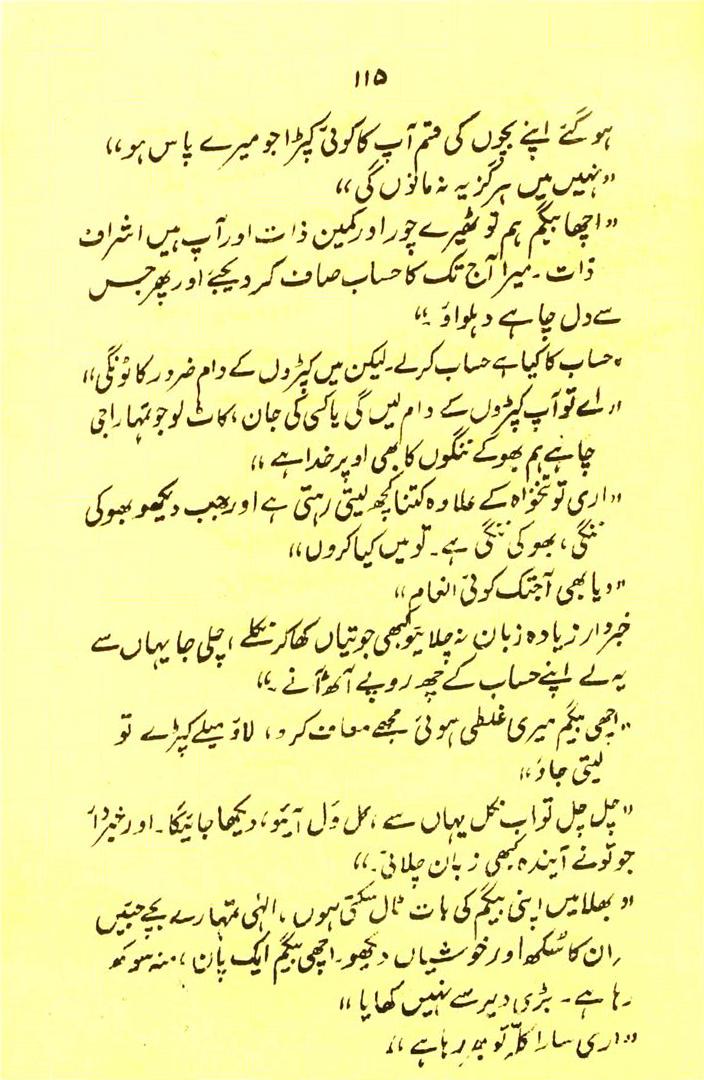 ۱۱۵
ہو گئے اپنے بچوں کی قسم آپ کا کوئی کپڑا جو میرے پاس ہو،،
،،نہیں میں ہرگز یہ نہ مانوں گی،،
،،اچھا بیگم ہم تو ٹھیرے چور اور کمین ذات اور آپ ہیں اشراف
ذات ۔ میرا آج تک کا حساب صاف کر دیجئے اور پھر جس
سے دل چاہے دہلواؤ ۔،،
،حساب کا کیا ہے حساب کر لے ۔ لیکن میں کپڑوں کے دام ضرور کاٹونگی،،
،،اے تو آپ کپڑوں کے دام لیں گی یا کسی کی جان، کاٹ لو جو تمہارا جی
چاہے ہم بھوکے ننگوں کا بھی اوپر خدا ہے ،،
،،اری تو تنخواہ کے علاوہ کتنا کچھ لیتی رہتی ہے اور جب دیکھو بھوکی
ننگی، بھوکی ننگی ہے ۔ تو میں کیا کروں،،
،،دیا بھی آجتک کوئی انعام،،
خبردار زیادہ زبان نہ چلائیو کبھی جوتیاں کھا کر نکلے، چلی جا یہاں سے
یہ لے اپنے حساب کے چھ روپے آٹھ آنے ۔،،
،،اچھی بیگم میری غلطی ہوئی مجھے معاف کرو، لاؤ میلے کپڑے تو
لیتی جاؤں،،
،،چل چل تو اب نکل یہاں سے، کل وَل آئیو، دیکھا جائیگا ۔ اور خبردار
جو تو نے آیندہ کبھی زبان چلائی ۔،،
،،بھلا میں اپنی بیگم کی بات ٹال سکتی ہوں، الٰہی تمہارے بچے جئیں
ان کا سُکھ اور خوشیاں دیکھو۔ اچھی بیگم ایک پان، منہ
رہا ہے ۔ بڑی دیر سے نہیں کھایا،،
،،اری سارا کلّہ تو رہا ہے،،